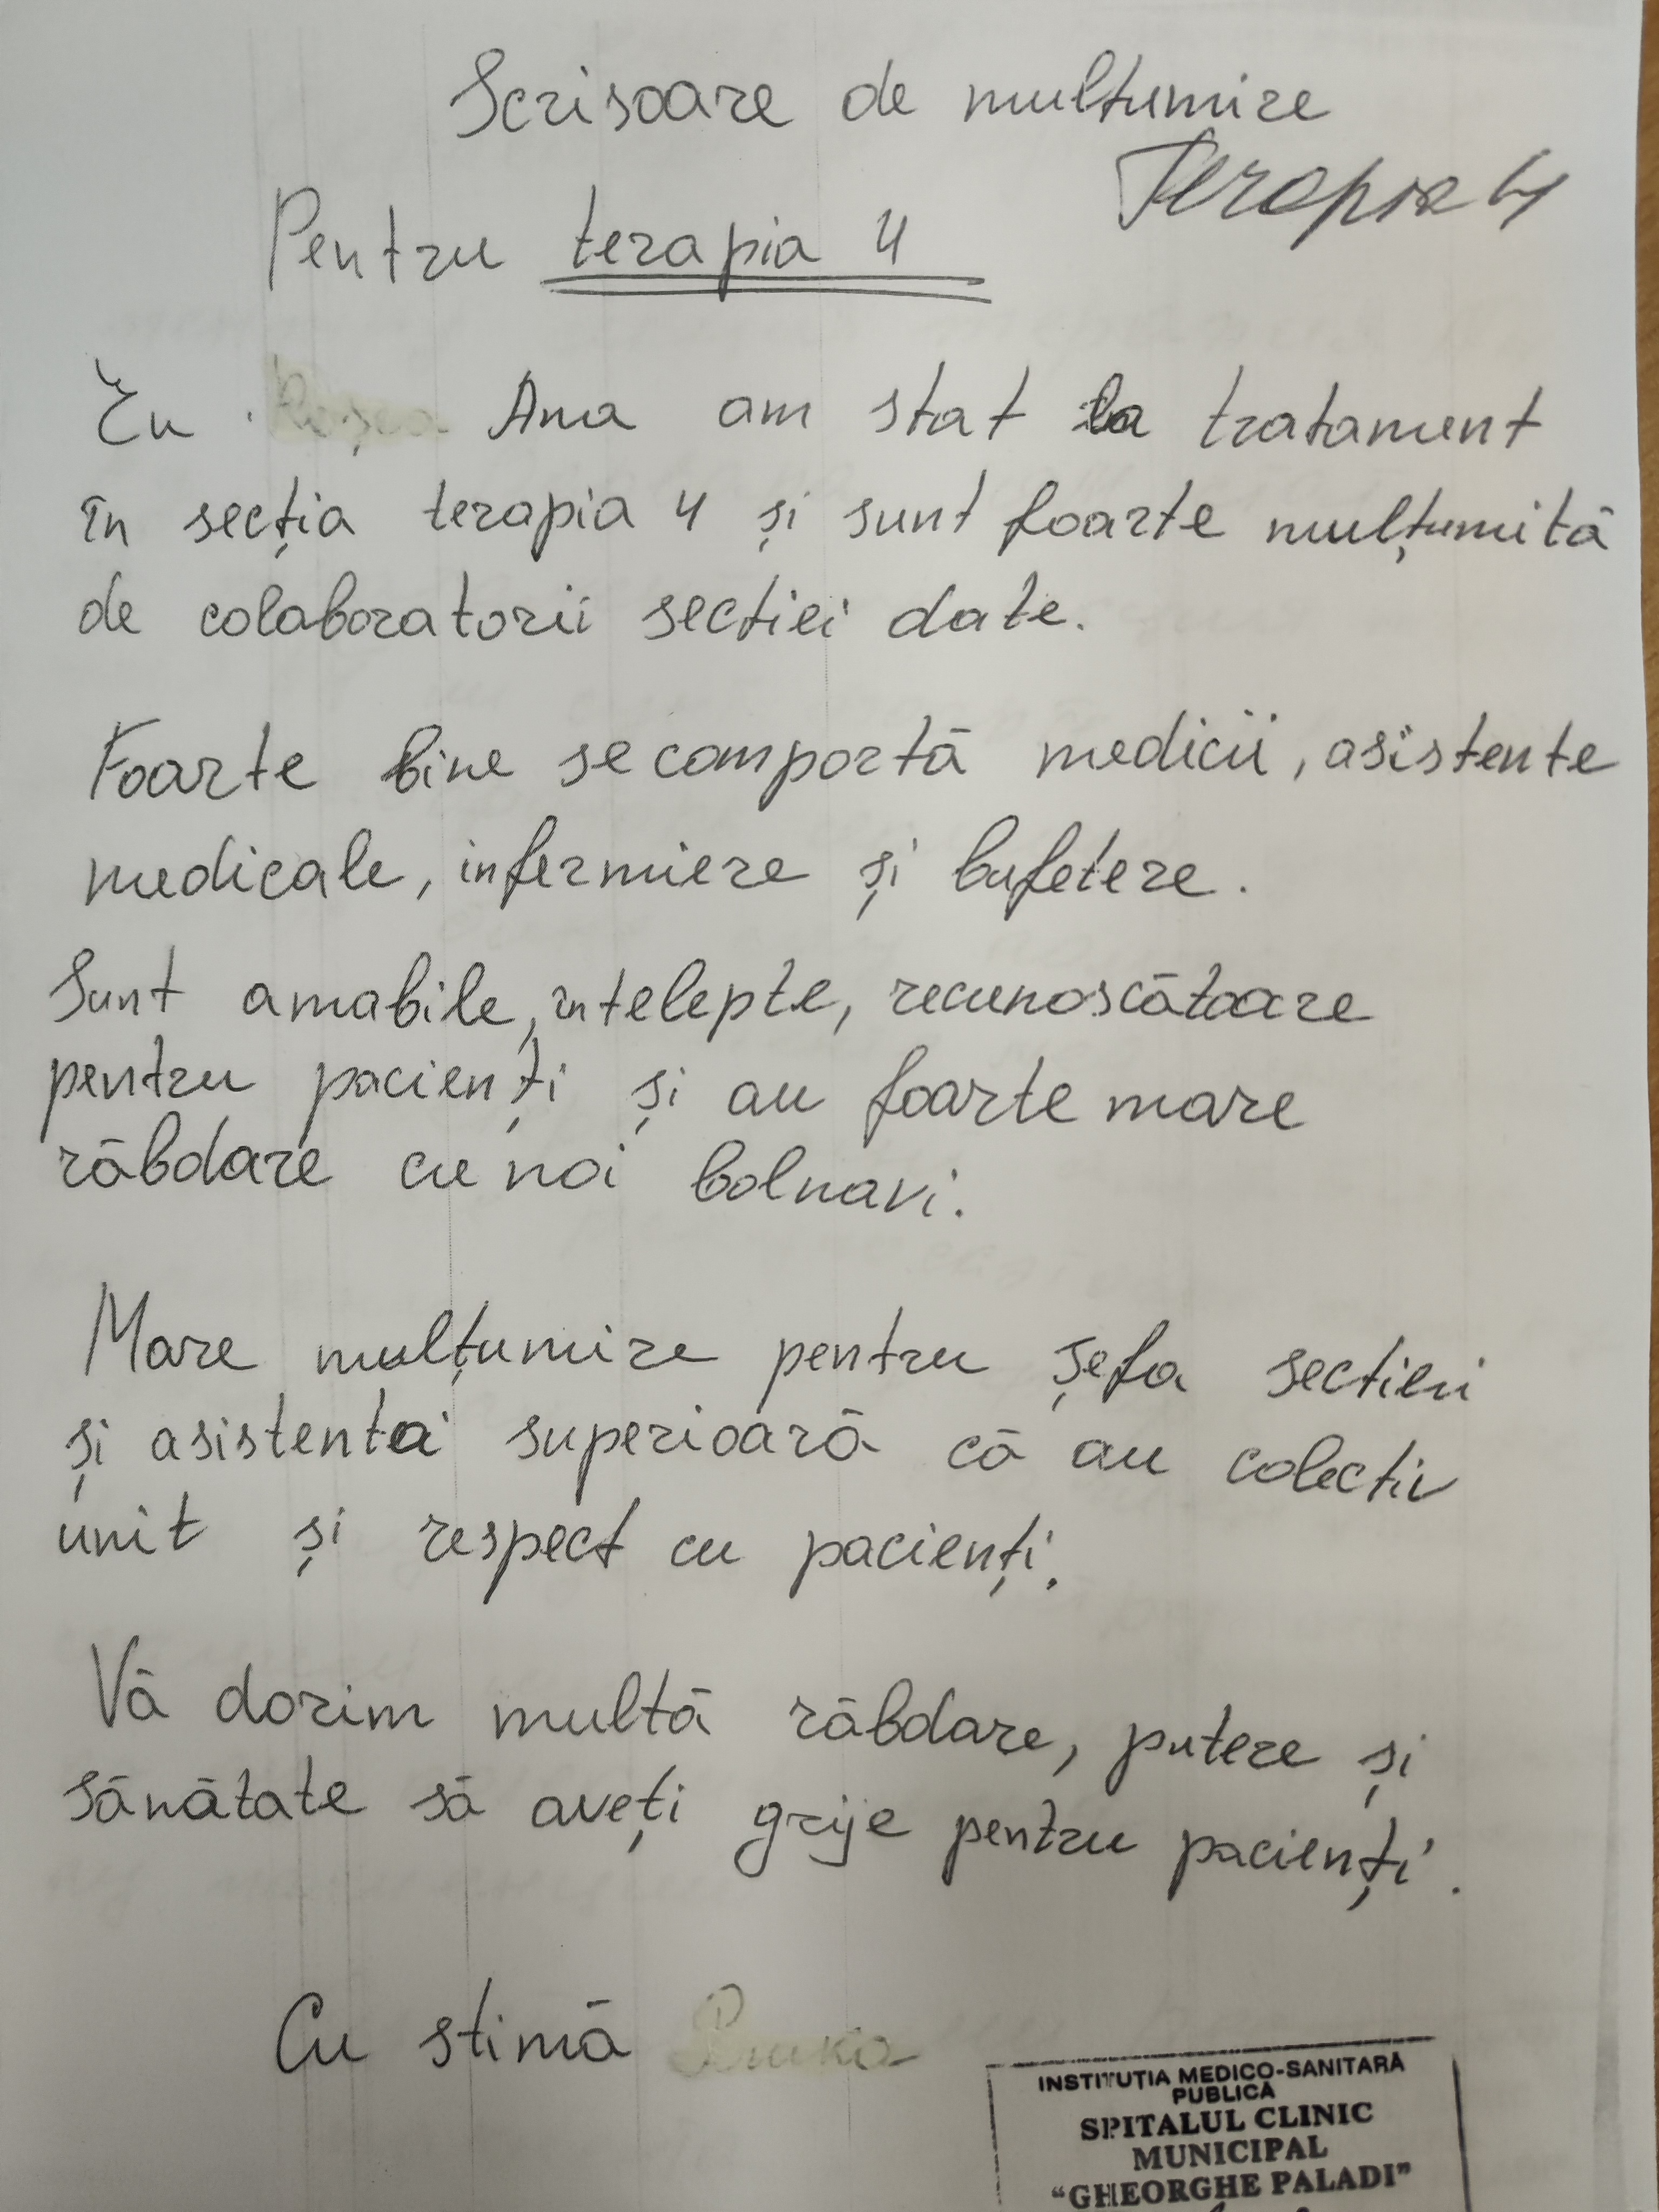 Scrisoare de multumire
Terapia 4
Pentru terapia 4
Eu Ana am stat la tratament
în secția terapia 4 și sunt foarte mulțumită
de colaboratorii sectiei date.
Foarte bine se comportă medicii, asistente
medicale, infermiere și bufetere.
Sunt amabile, intelepte, recunoscătoare
pentru pacienți și au foarte mare
răbdare cu noi bolnavi.
Mare mulțumire pentru șefa sectiei
și asistenta superioară că au colectiv
unit și respect cu pacienți.
Vă dorim multă răbdare, putere și
sănătate să aveți grije pentru pacienți.
Cu stimă
INSTITUTIA MEDICO-SANITARĂ
PUBLICĂ
SPITALUL CLINIC
MUNICIPAL
"GHEORGHE PALADI"